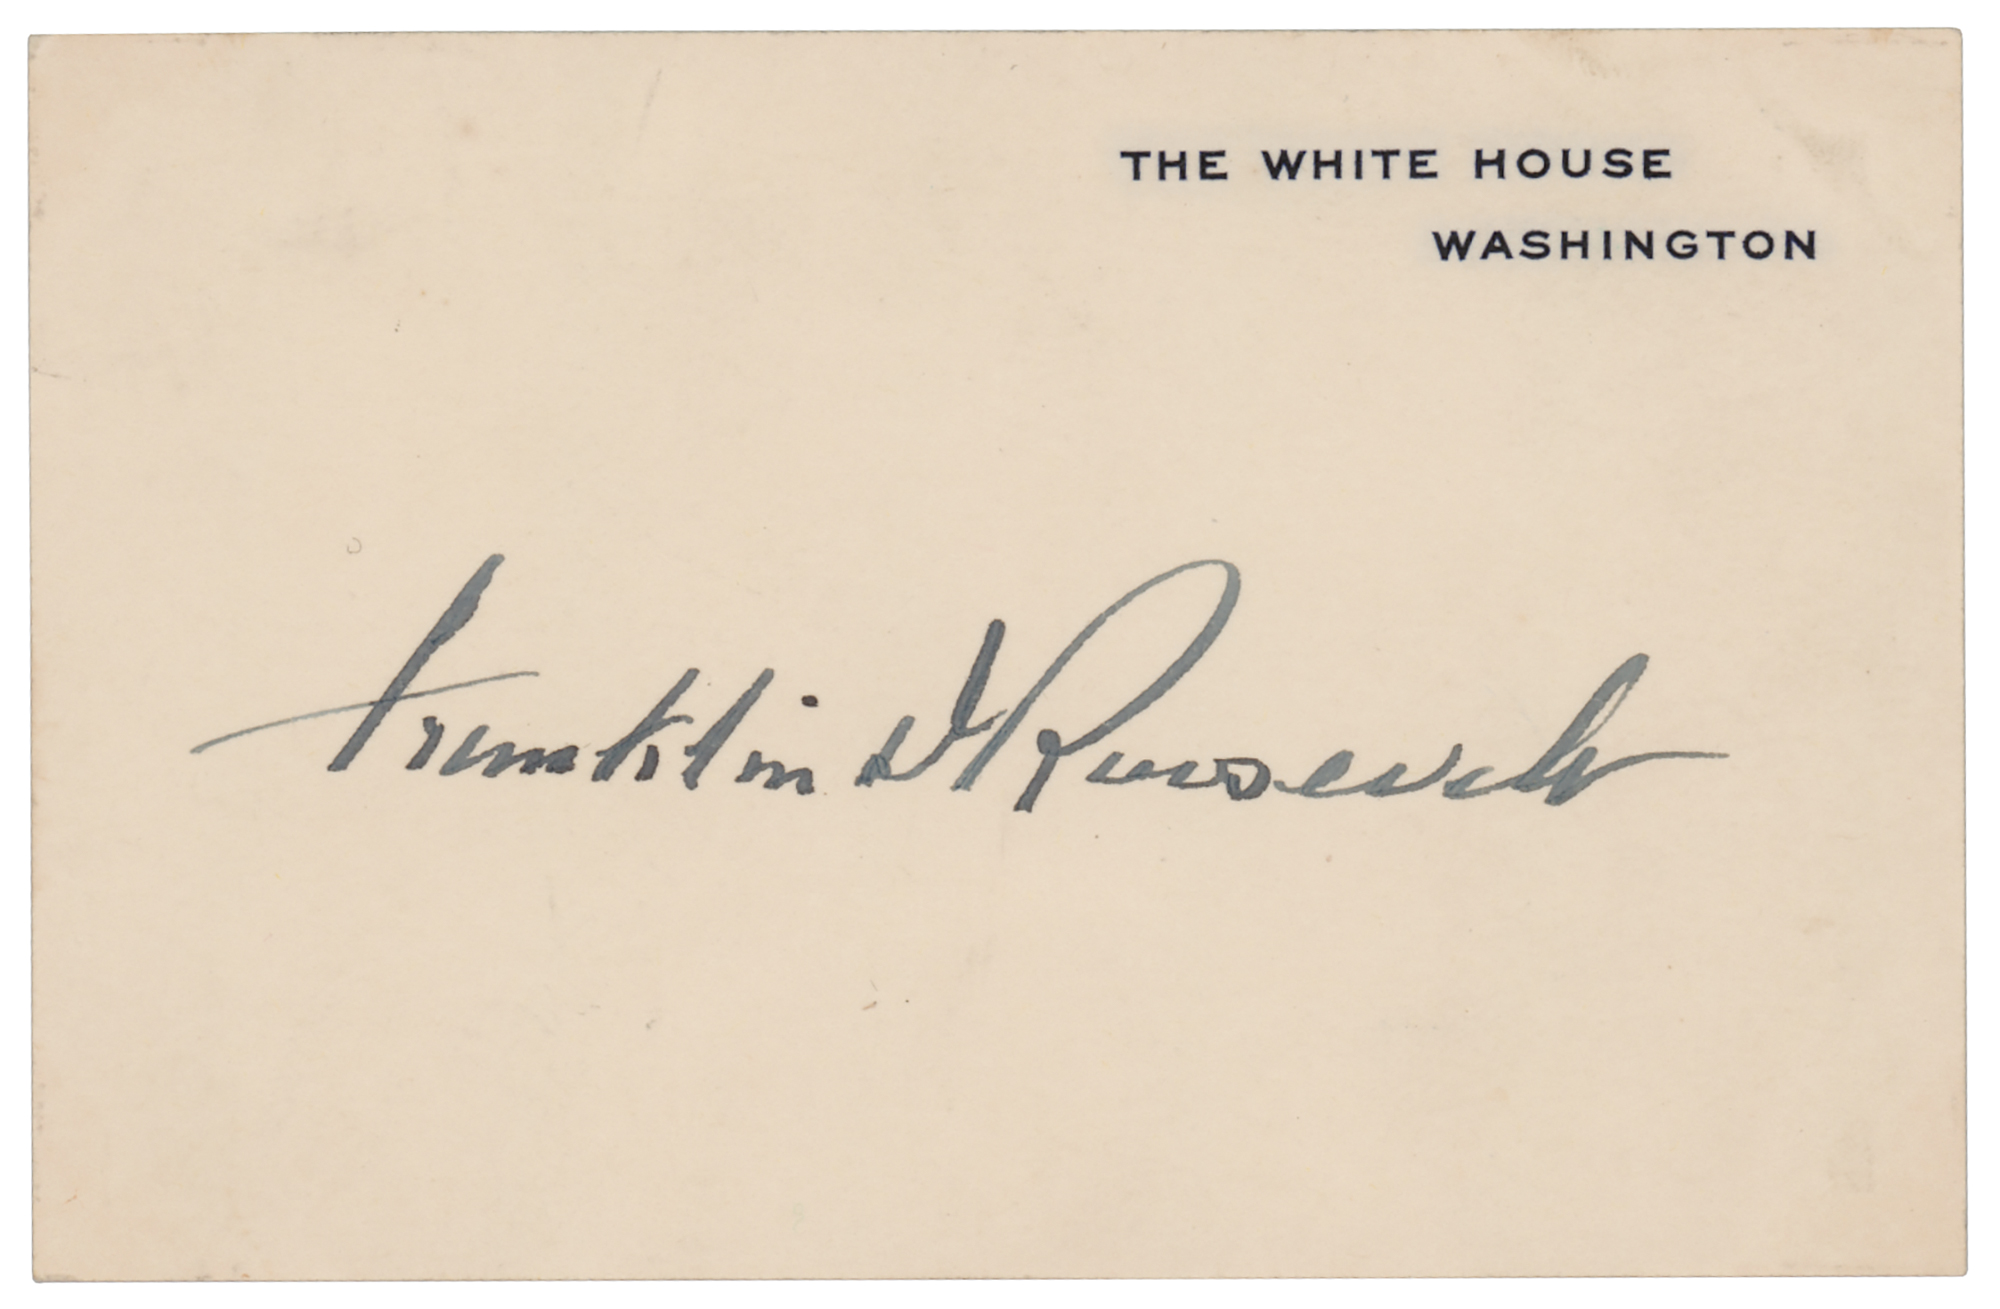 THE WHITE HOUSE
WASHINGTON
Franklin D Roosevelt